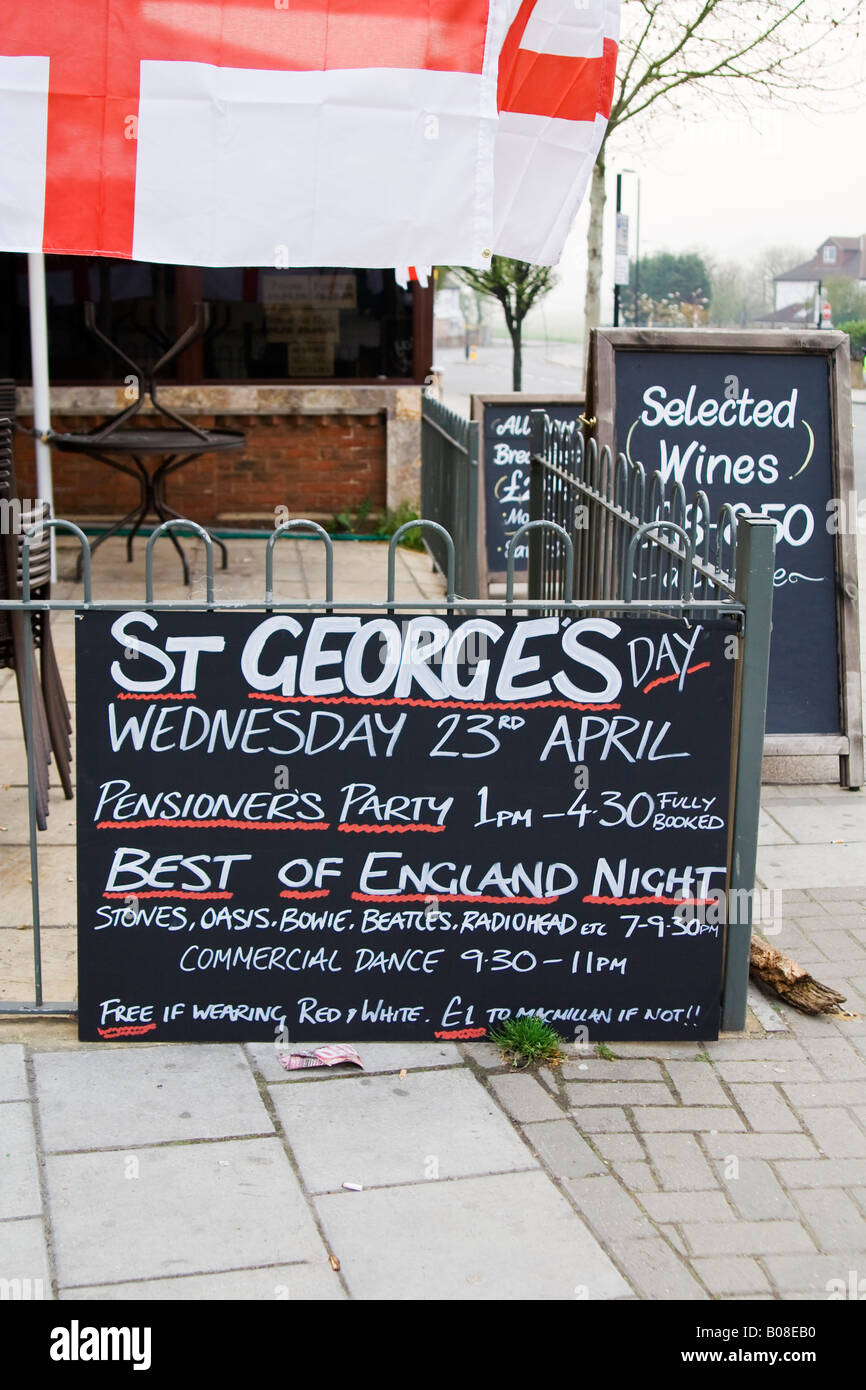 All
Brea
£
Mo
Selected
Wines
50
ST GEORGE'S DAY
WEDNESDAY 23RD APRIL
PENSIONER'S PARTY 1PM - 4.30 FULLY BOOKED
BEST OF ENGLAND NIGHT
STONES, OASIS. BOWIE. BEATLES. RADIOHEAD ETC 7-9.30PM
COMMERCIAL DANCE 9.30 - 11PM
FREE IF WEARING RED & WHITE. £1 TO MACMILLAN IF NOT!!
alamy
Image ID: B08EB0
www.alamy.com